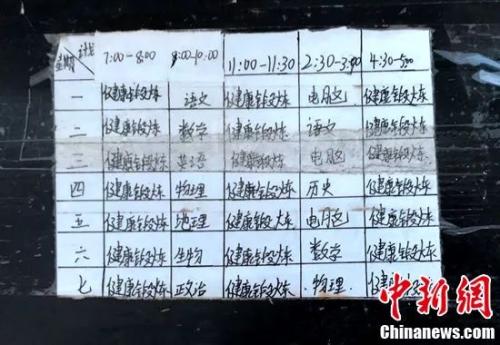 计划
星期 7:00-8:00 9:00-10:00 11:00-11:30 2:30-3:00 4:30-5:00
一 健康锻炼 语文 健康锻炼 电脑 健康锻炼
二 健康锻炼 数学 健康锻炼 语文 健康锻炼
三 健康锻炼 英语 健康锻炼 电脑 健康锻炼
四 健康锻炼 物理 健康锻炼 历史 健康锻炼
五 健康锻炼 地理 健康锻炼 电脑 健康锻炼
六 健康锻炼 生物 健康锻炼 数学 健康锻炼
七 健康锻炼 政治 健康锻炼 物理 健康锻炼
中新网
Chinanews.com